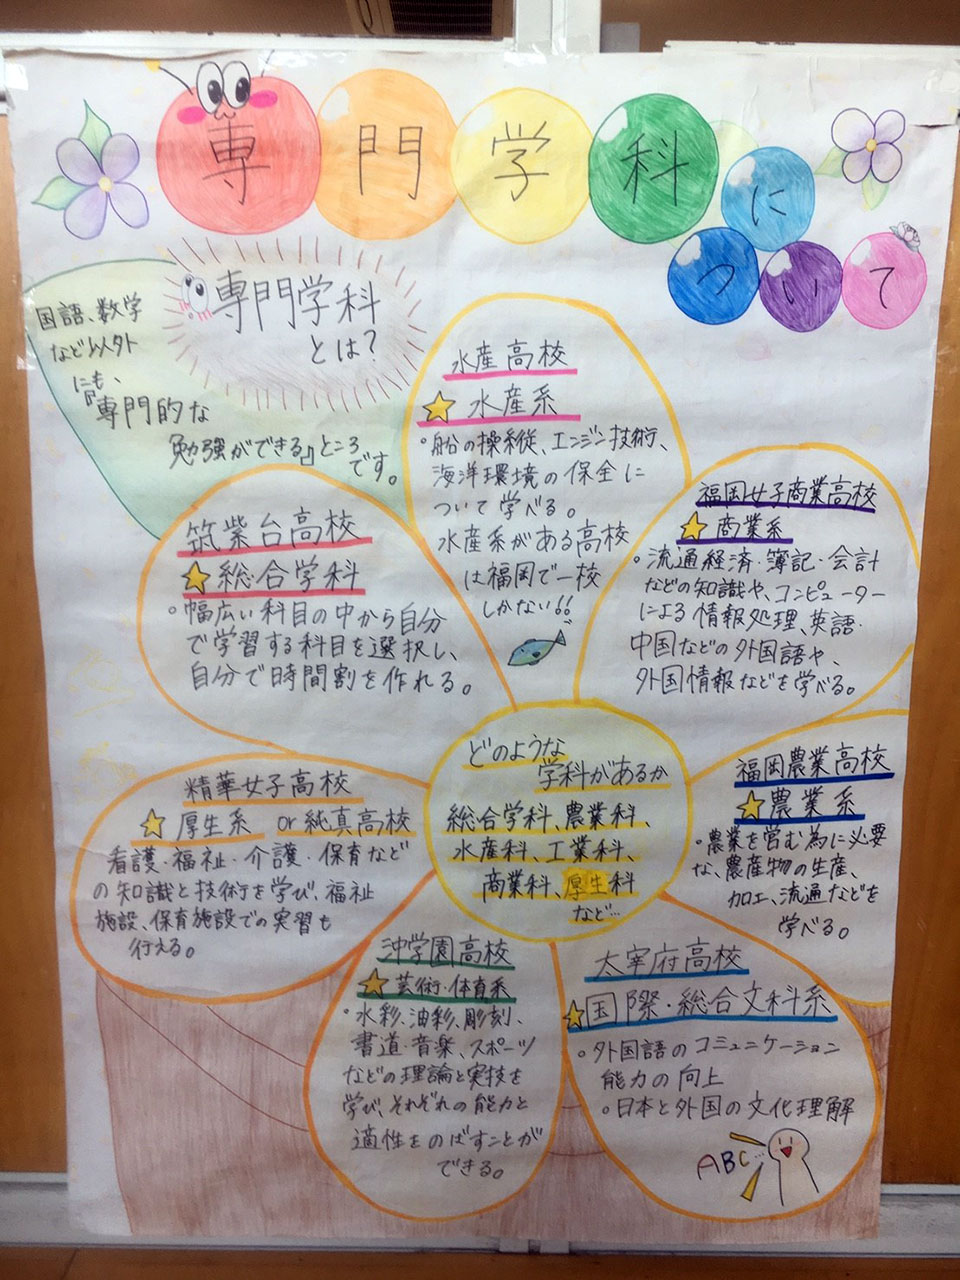 専門学科に
ついて
専門学科
とは？
国語、数学
など以外
にも、
『専門的な
勉強ができる』ところ
です。
水産高校
☆ 水産系
・船の操縦、エンジン技術、
海洋環境の保全に
ついて学べる。
水産系がある高校
は福岡で一校
しかない!!
福岡女子商業高校
☆ 商業系
・流通経済・簿記・会計
などの知識や、コンピューター
による情報処理、英語・
中国などの外国語や、
外国情報などを学べる。
筑紫台高校
☆ 総合学科
・幅広い科目の中から自分
で学習する科目を選択し、
自分で時間割を作れる。
どのような
学科があるか
総合学科、農業科、
水産科、工業科、
商業科、厚生科
など…
福岡農業高校
☆ 農業系
・農業を営む為に必要
な、農産物の生産、
加工、流通などを
学べる。
精華女子高校
☆ 厚生系 or 純真高校
看護・福祉・介護・保育など
の知識と技術を学び、福祉
施設、保育施設での実習も
行える。
沖学園高校
☆ 芸術・体育系
・水彩、油彩、彫刻、
書道・音楽、スポーツ
などの理論と実技を
学び、それぞれの能力と
適性をのばすことが
できる。
太宰府高校
☆国際・総合文科系
・外国語のコミュニケーション
能力の向上
・日本と外国の文化理解
ABC…